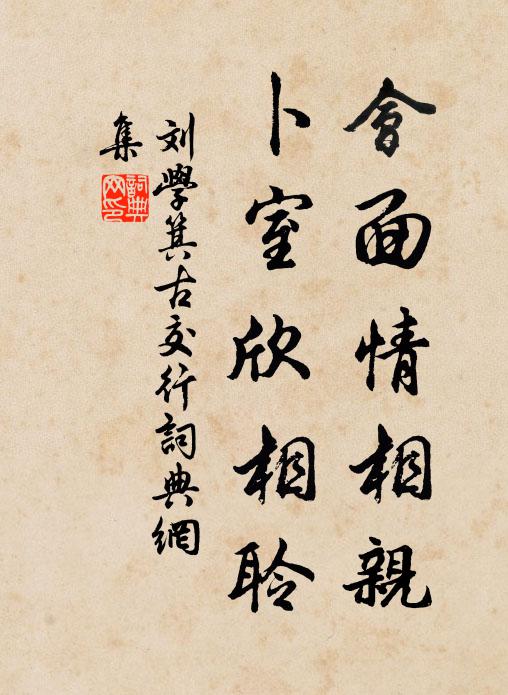 會面情相親
卜室欣相聆
刘學箕古交行詞典網
集
詞典
网印